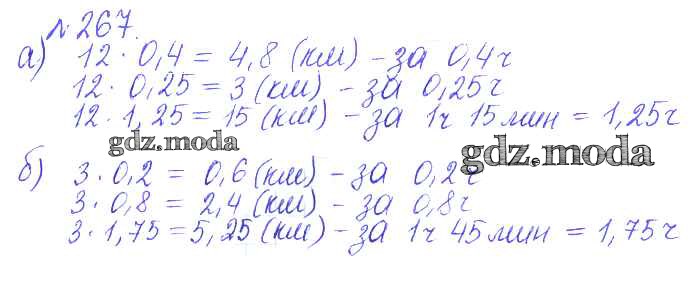 № 267.
а) 12 · 0,4 = 4,8 (км) - за 0,4ч
12 · 0,25 = 3 (км) - за 0,25ч
12 · 1,25 = 15 (км) - за 1ч 15 мин = 1,25ч
gdz.moda
gdz.moda
б) 3 · 0,2 = 0,6 (км) - за 0,2ч
3 · 0,8 = 2,4 (км) - за 0,8ч
3 · 1,75 = 5,25 (км) - за 1ч 45 мин = 1,75ч